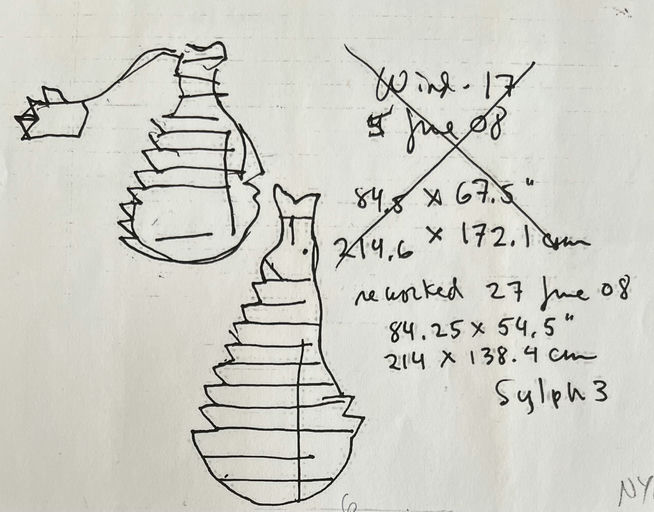 Wind - 17
5 June 08
84.5 x 67.5"
214.6 x 172.1 cm
reworked 27 June 08
84.25 x 54.5"
214 x 138.4 cm
Sylph 3
6